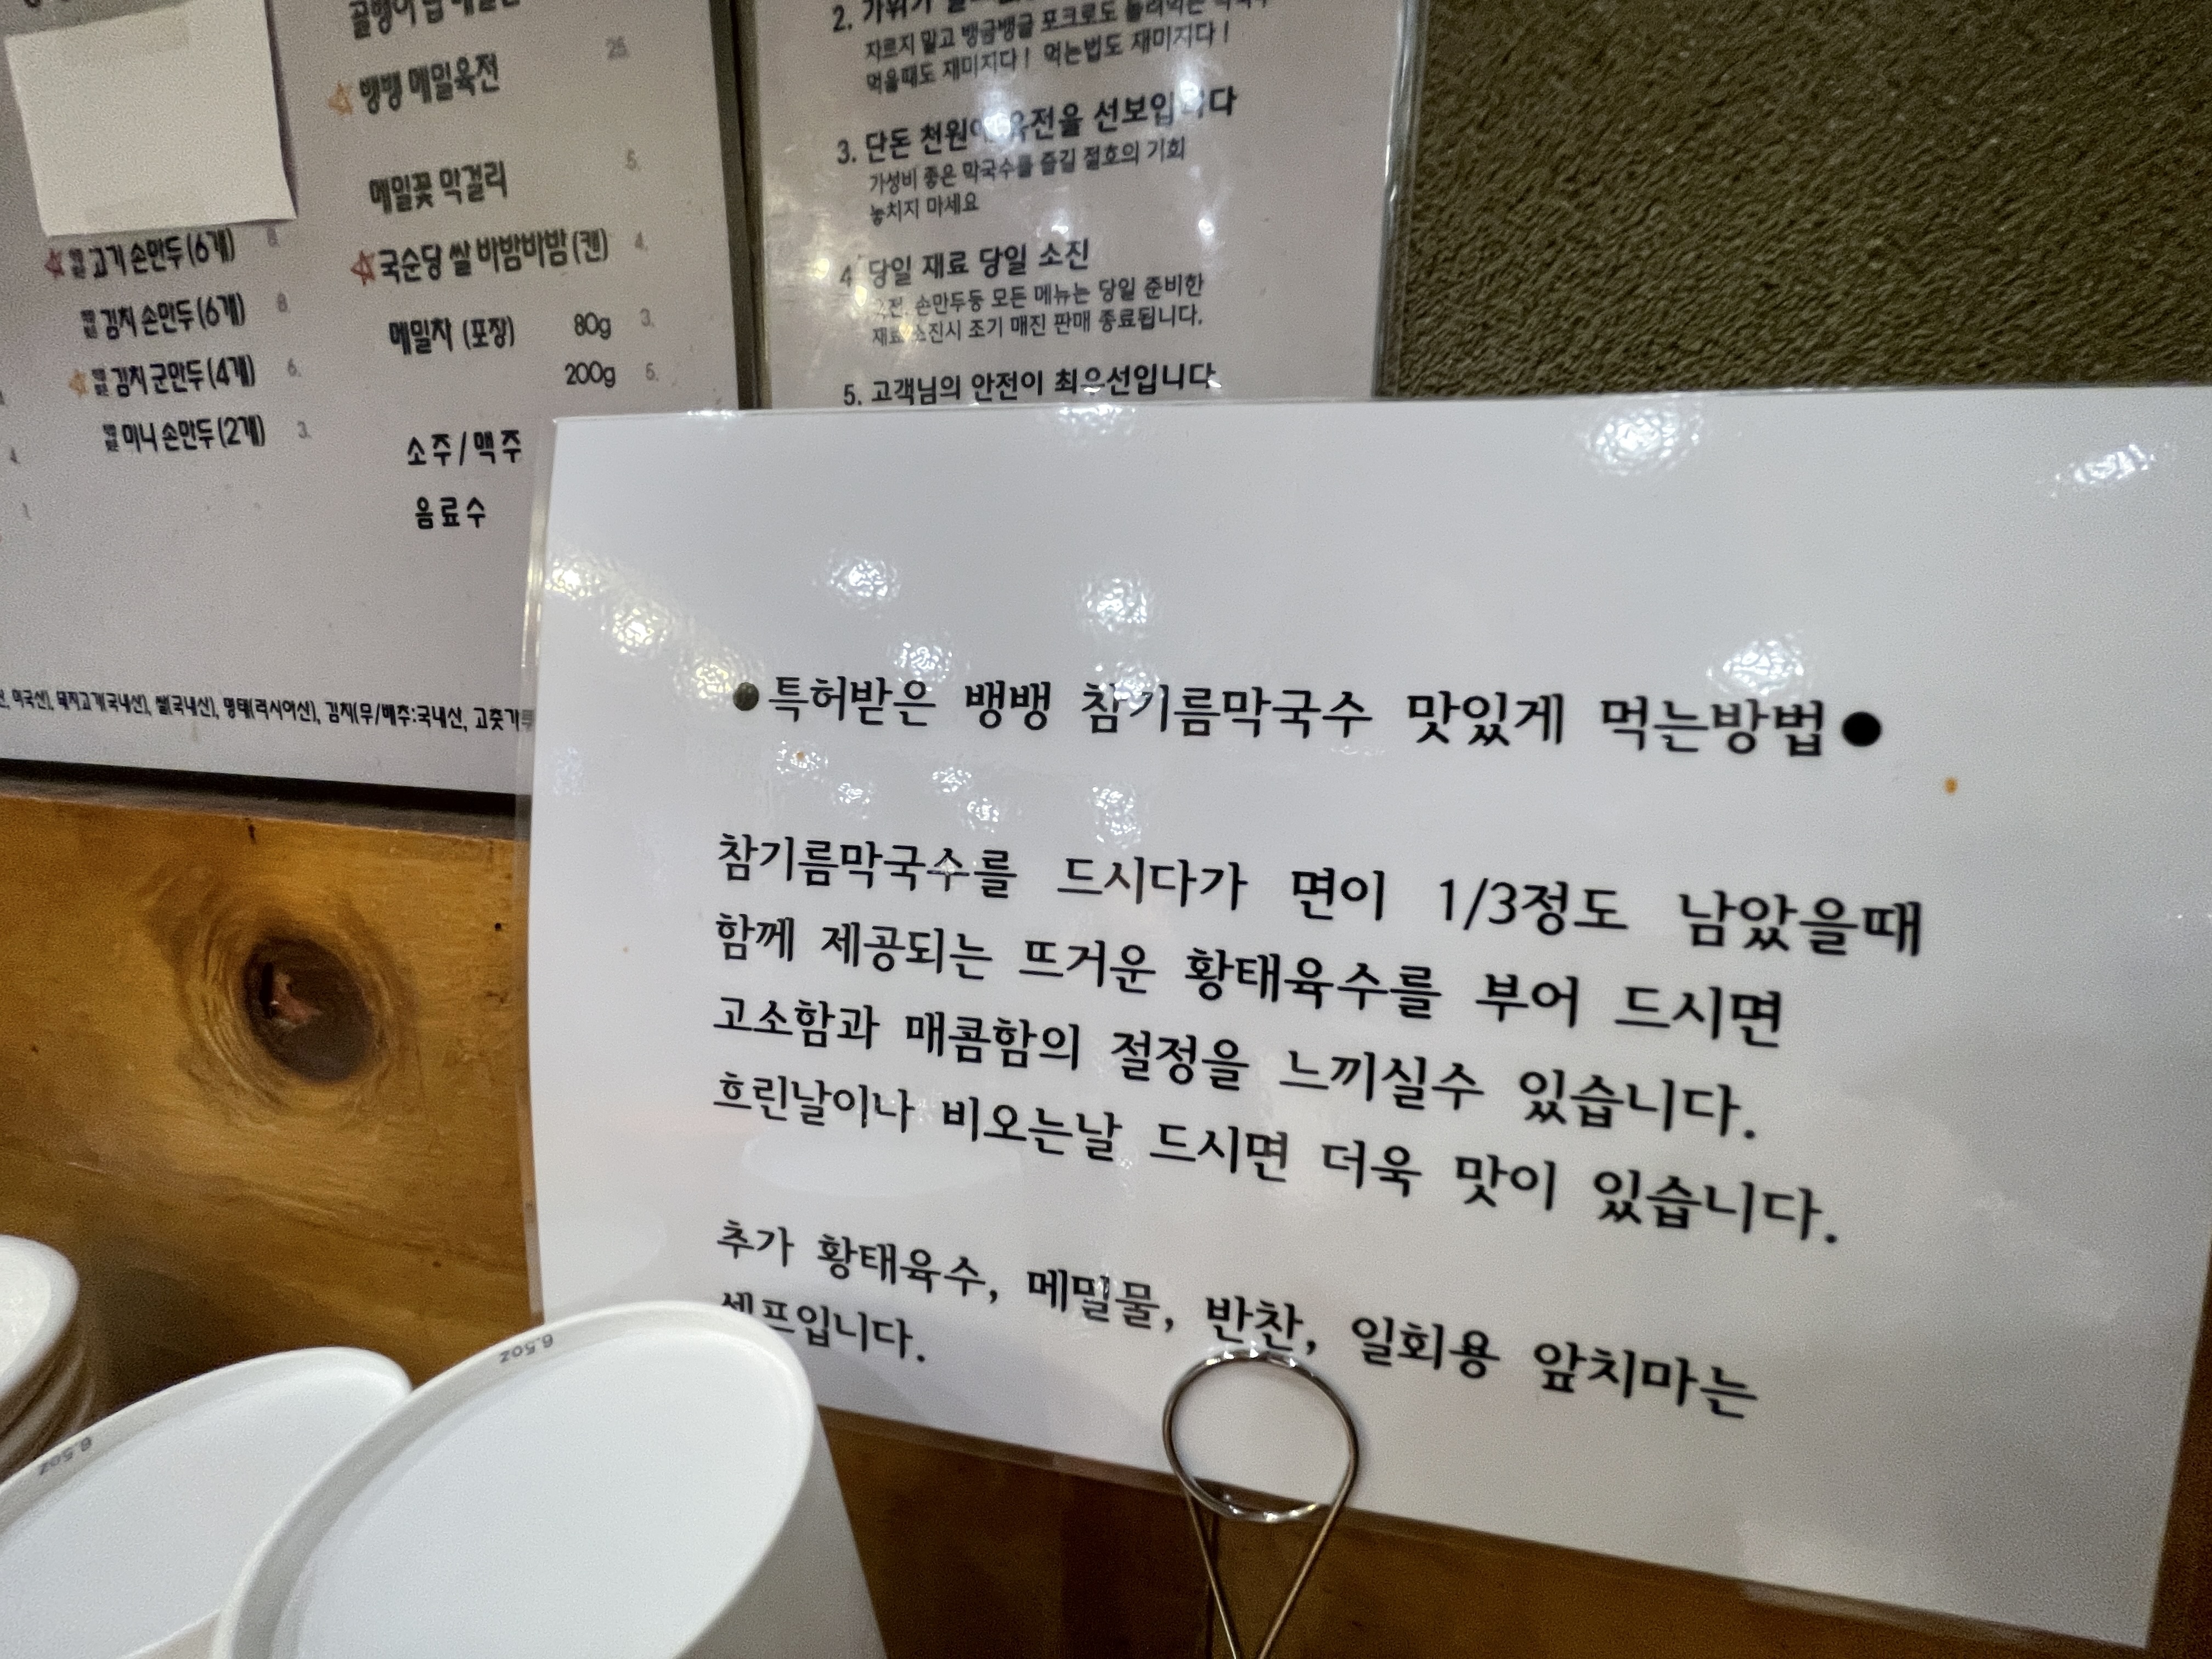 뱅뱅 메밀육전
25.
메밀꽃 막걸리
5.
고기 손만두(6개)
8.
국순당 쌀 바밤바밤(캔)
4.
김치 손만두(6개)
8.
메밀차 (포장) 80g 3.
200g 5.
김치 군만두(4개)
6.
미니 손만두(2개)
3.
소주/맥주
음료수
미국산), 돼지고기(국내산), 쌀(국내산), 명태(러시아산), 김치(무/배추:국내산, 고춧가루
2. 가위가
자르지 말고 뱅글뱅글 포크로도 돌려먹는
먹을때도 재미지다! 먹는법도 재미지다!
3. 단돈 천원에 육전을 선보입니다
가성비 좋은 막국수를 즐길 절호의 기회
놓치지 마세요
4. 당일 재료 당일 소진
손만두등 모든 메뉴는 당일 준비한
재료 소진시 조기 매진 판매 종료됩니다.
5. 고객님의 안전이 최우선입니다
●특허받은 뱅뱅 참기름막국수 맛있게 먹는방법●
참기름막국수를 드시다가 면이 1/3정도 남았을때
함께 제공되는 뜨거운 황태육수를 부어 드시면
고소함과 매콤함의 절정을 느끼실수 있습니다.
흐린날이나 비오는날 드시면 더욱 맛이 있습니다.
추가 황태육수, 메밀물, 반찬, 일회용 앞치마는
셀프입니다.
6.5oz
6.5oz